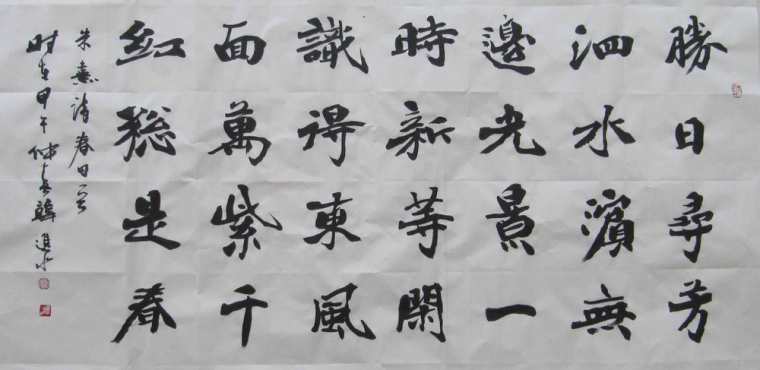 勝日尋芳
泗水濱無
邊光景一
時新等閑
識得東風
面萬紫千
紅總是春
朱熹詩春日
时在甲午仲